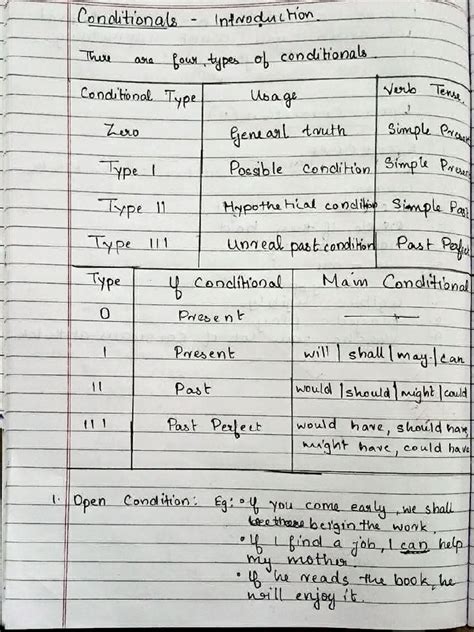 Conditionals - Introduction
There are four types of conditionals
Conditional Type Usage Verb Tense
Zero Genearl truth Simple Prese
Type I Possible Condition Simple Prese
Type II Hypothetical condition Simple Pas
Type III Unreal past condition Past Perfe
Type If Conditional Main Conditional
0 Present
I Present will / shall / may / can
II Past would / should / might / could
III Past Perfect would have, should have
might have, could have
1. Open Condition: Eg: • If you come early, we shall
bergin the work.
• If I find a job, I can help
my mother.
• If he reads the book, he
will enjoy it.